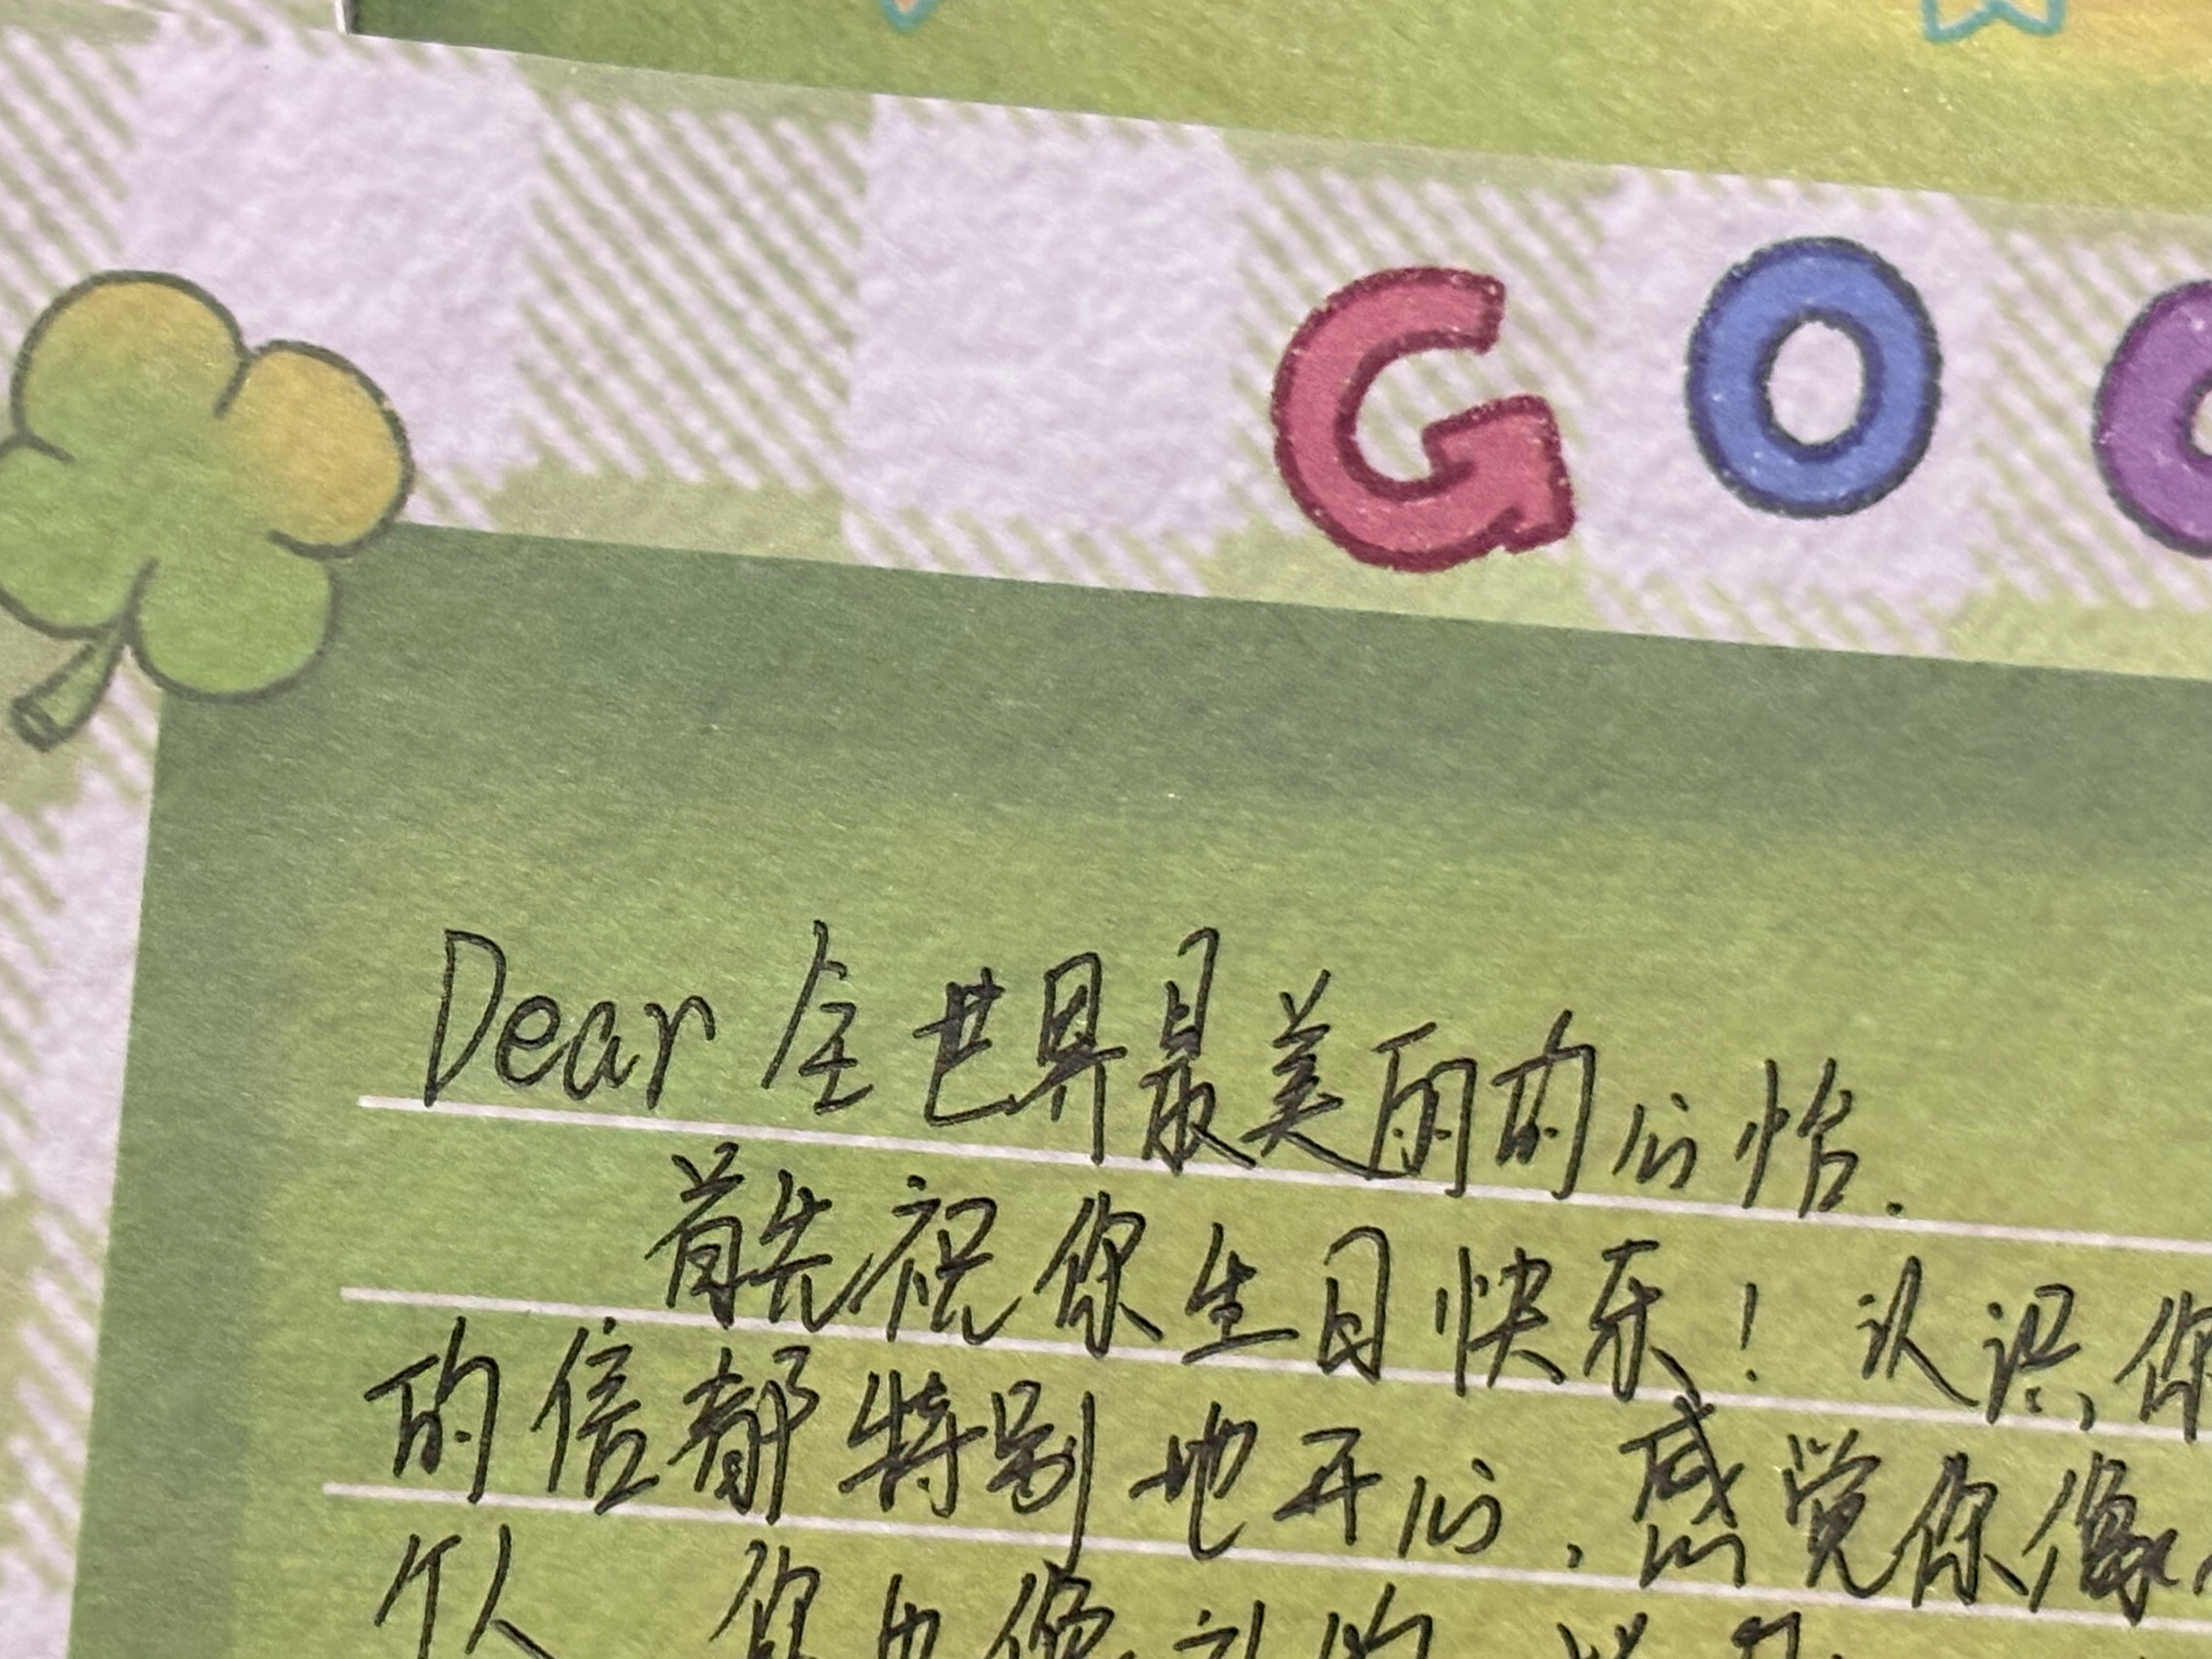 GOO
Dear 全世界最美丽的心怡.
首先祝你生日快乐！认识你
的信都特别地开心，感觉你像
个人